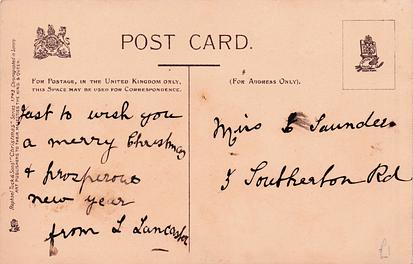 POST CARD.
FOR POSTAGE, IN THE UNITED KINGDOM ONLY,
THIS SPACE MAY BE USED FOR CORRESPONDENCE.
(FOR ADDRESS ONLY).
Just to wish you
a merry Christmas
& prosperous
new year
from L Lancaster
Miss E Saunders
3 Southerton Rd
Raphael Tuck & Sons' "Christmas" Series